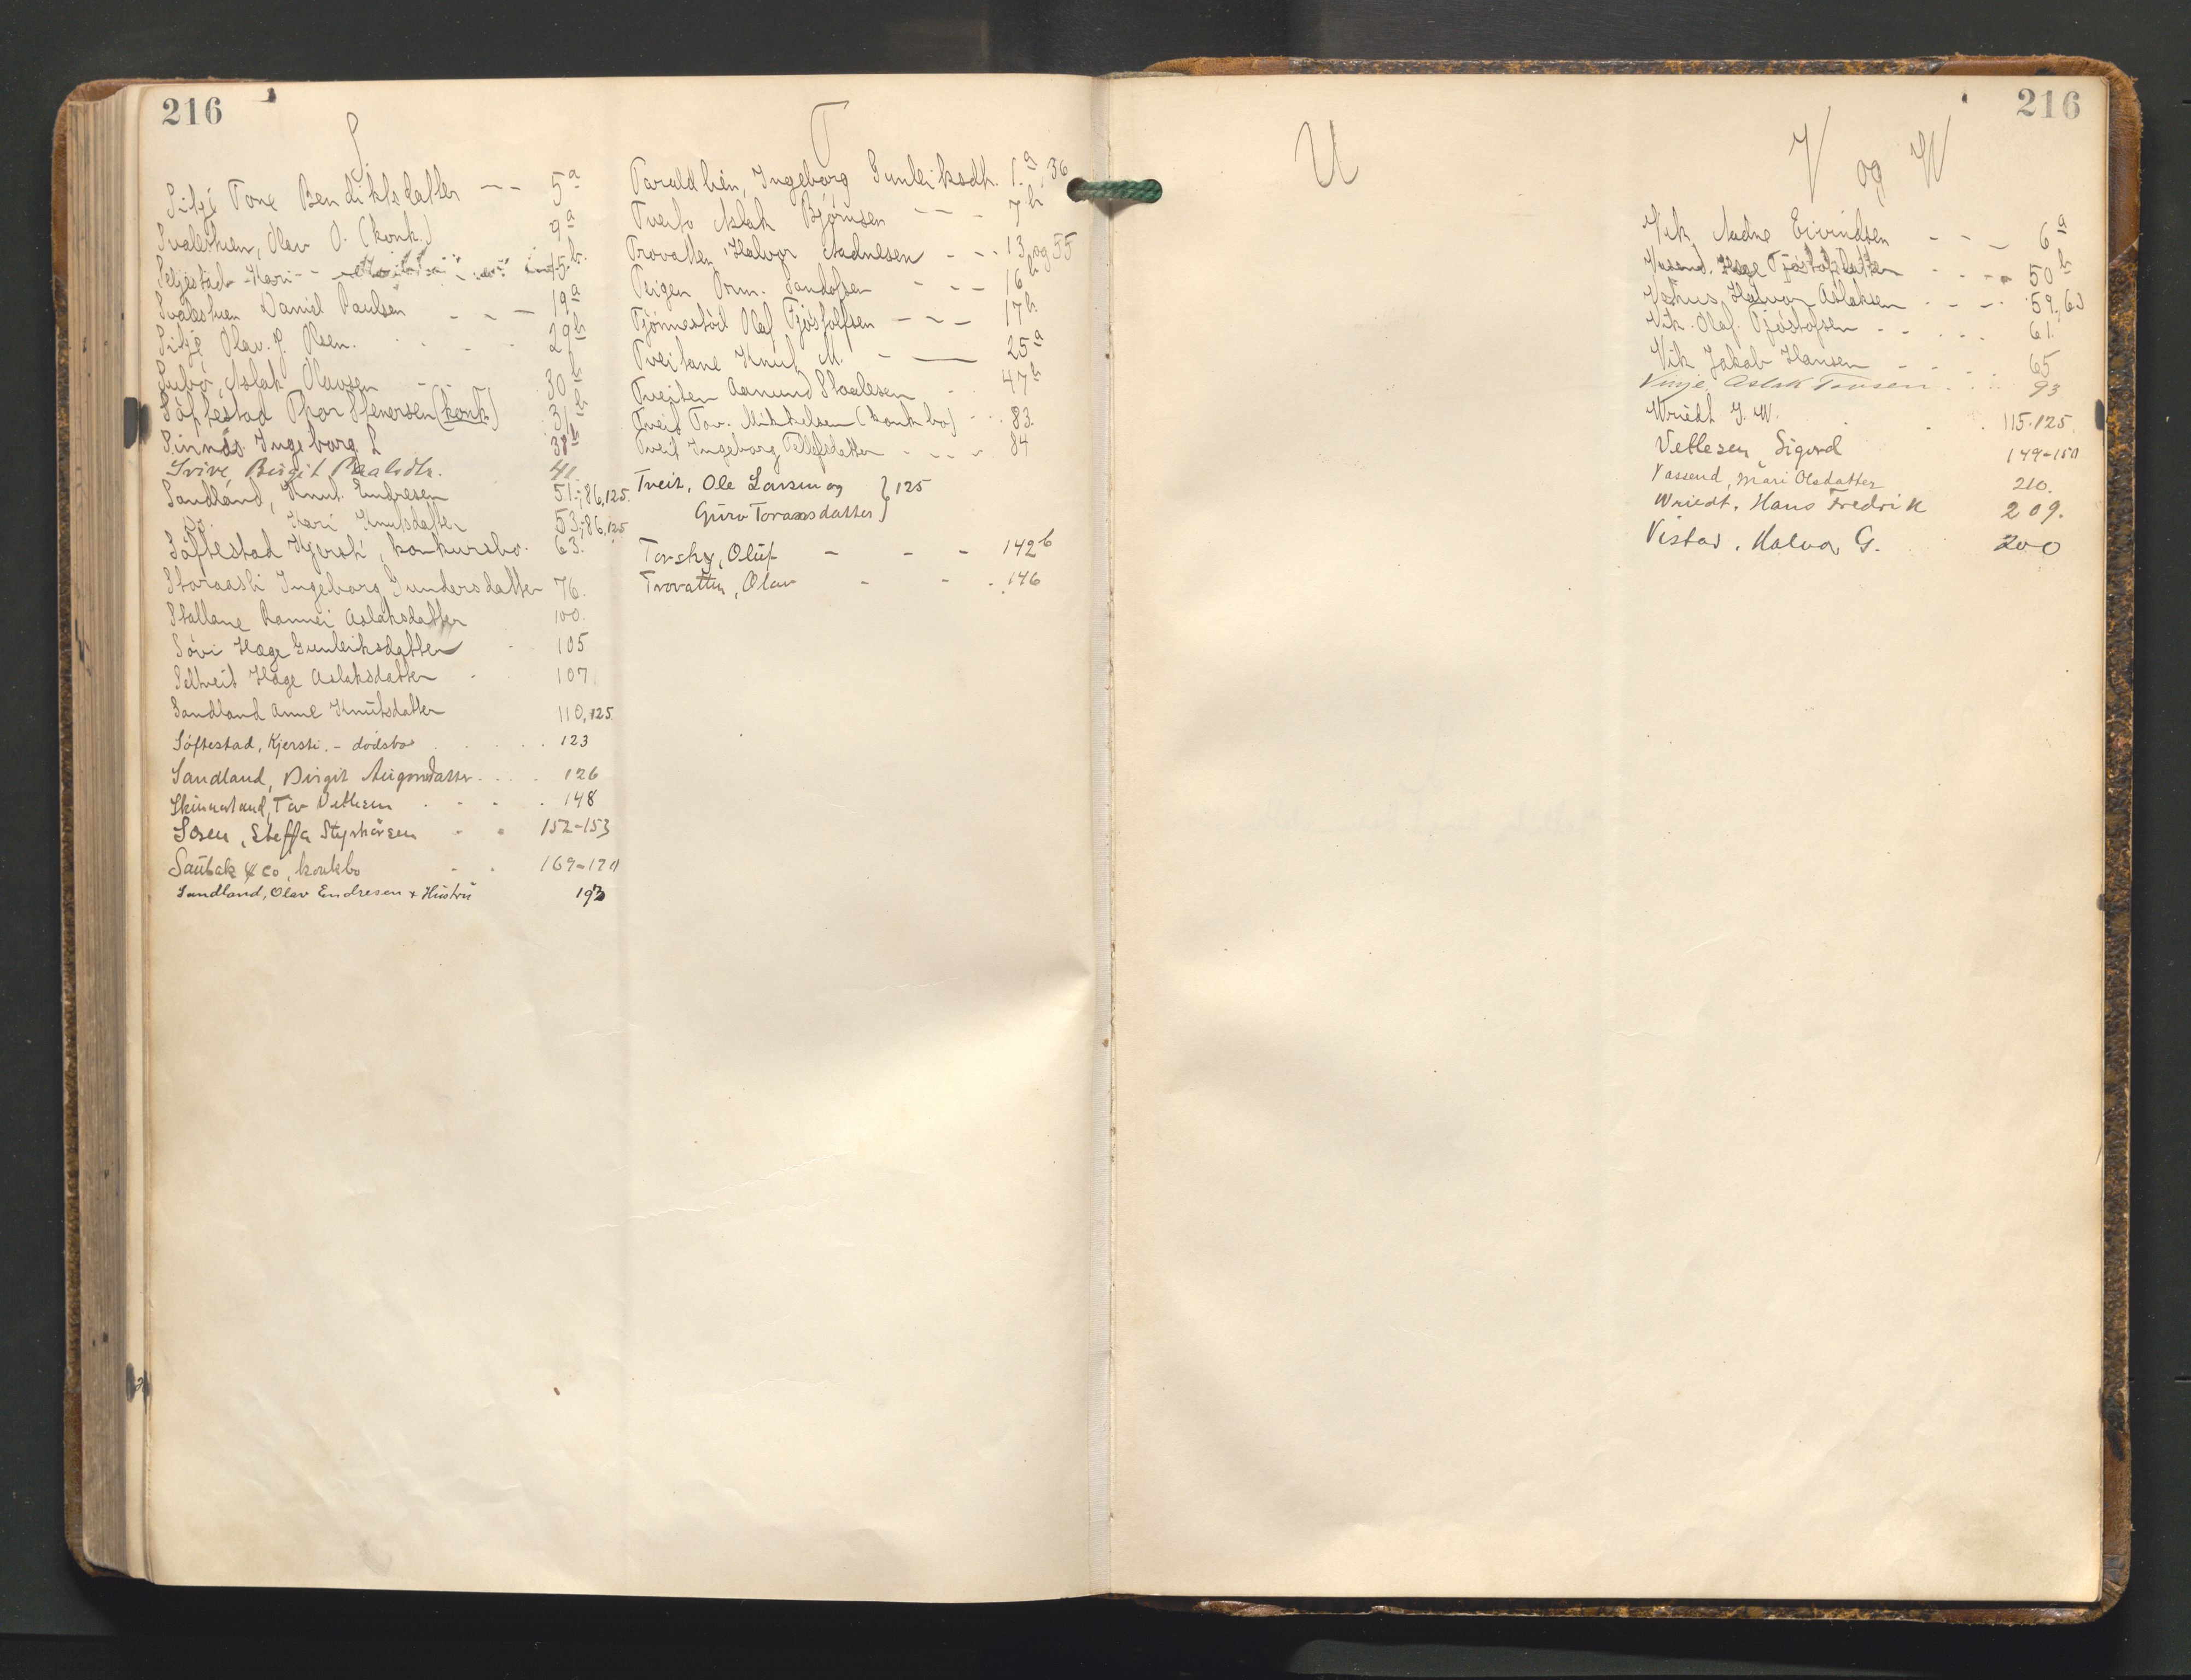 216
S
Sitje Tone Bendiktsdatter 5a
Svalestuen, Olav O. (konk.) 9a
Seljestad Kari 15b
Svalestuen Daniel Paulsen 19a
Sitje Olav. J. Olsen. 29b
Subø, Aslak Olausen 30b
Söftestad Thor Stenersen (konk) 31b
Sinnös Ingeborg L 38b
Svive, Birgit Paalsdtr. 41
Sandland, Knut. Endresen 51; 86, 125.
Do. Kari Knutsdatter 53; 86, 125
Söftestad Kjersti, konkursbo. 63.
Storaasli Ingeborg Gundersdatter 76.
Stallane Rannei Aslaksdatter 100.
Sövi Hæge Gunleiksdatter 105
Seltveit Hæge Aslaksdatter 107
Sandland Anne Knutsdatter 110, 125
Söftestad, Kjersti. - dödsbo 123
Sandland, Birgit 126
Tov 148
Steffa 152-153
Sautak & Co, konkbo 169-170
Sandland, Olav Endresen + Hustru 193
T
Taraldlien, Ingeborg Gunleiksdtr. 1.a, 36
Tveito Aslak Björnsen 7b
Trovatten Halvor Aadnesen 13 og 55
Teigen Orm. Sandofsen 16b
Tjönnestöil Olaf Tjöstolfsen 17b
Tveitane Knut M. 25a
Tveiten Aamund Staalesen 47b
Tveit Tov. Mikkelsen (konk bo) 83.
Tveit Ingeborg Tellefsdatter 84
Tveit, Ole Larsen og } 125
Guro Toransdatter
Torsky, Oluf 142b
Trovatten, Olav 146
U
216
V og W
Vik Aadne Eivindsen 6a
Hæge Tjöstolfsdatter 50b
Halvor Aslaksen 59, 63
Vik. Olaf. Tjöstofsen 61.
Vik Jakob Hansen 65
Vinje, Aslak Tovsen 93
Wriedt J. W. 115.125
Vetlesen, Sigurd 149-150
Vassend, Mari Olsdatter 210.
Wriedt, Hans Fredrik 209.
Vistad, Halvor G. 200